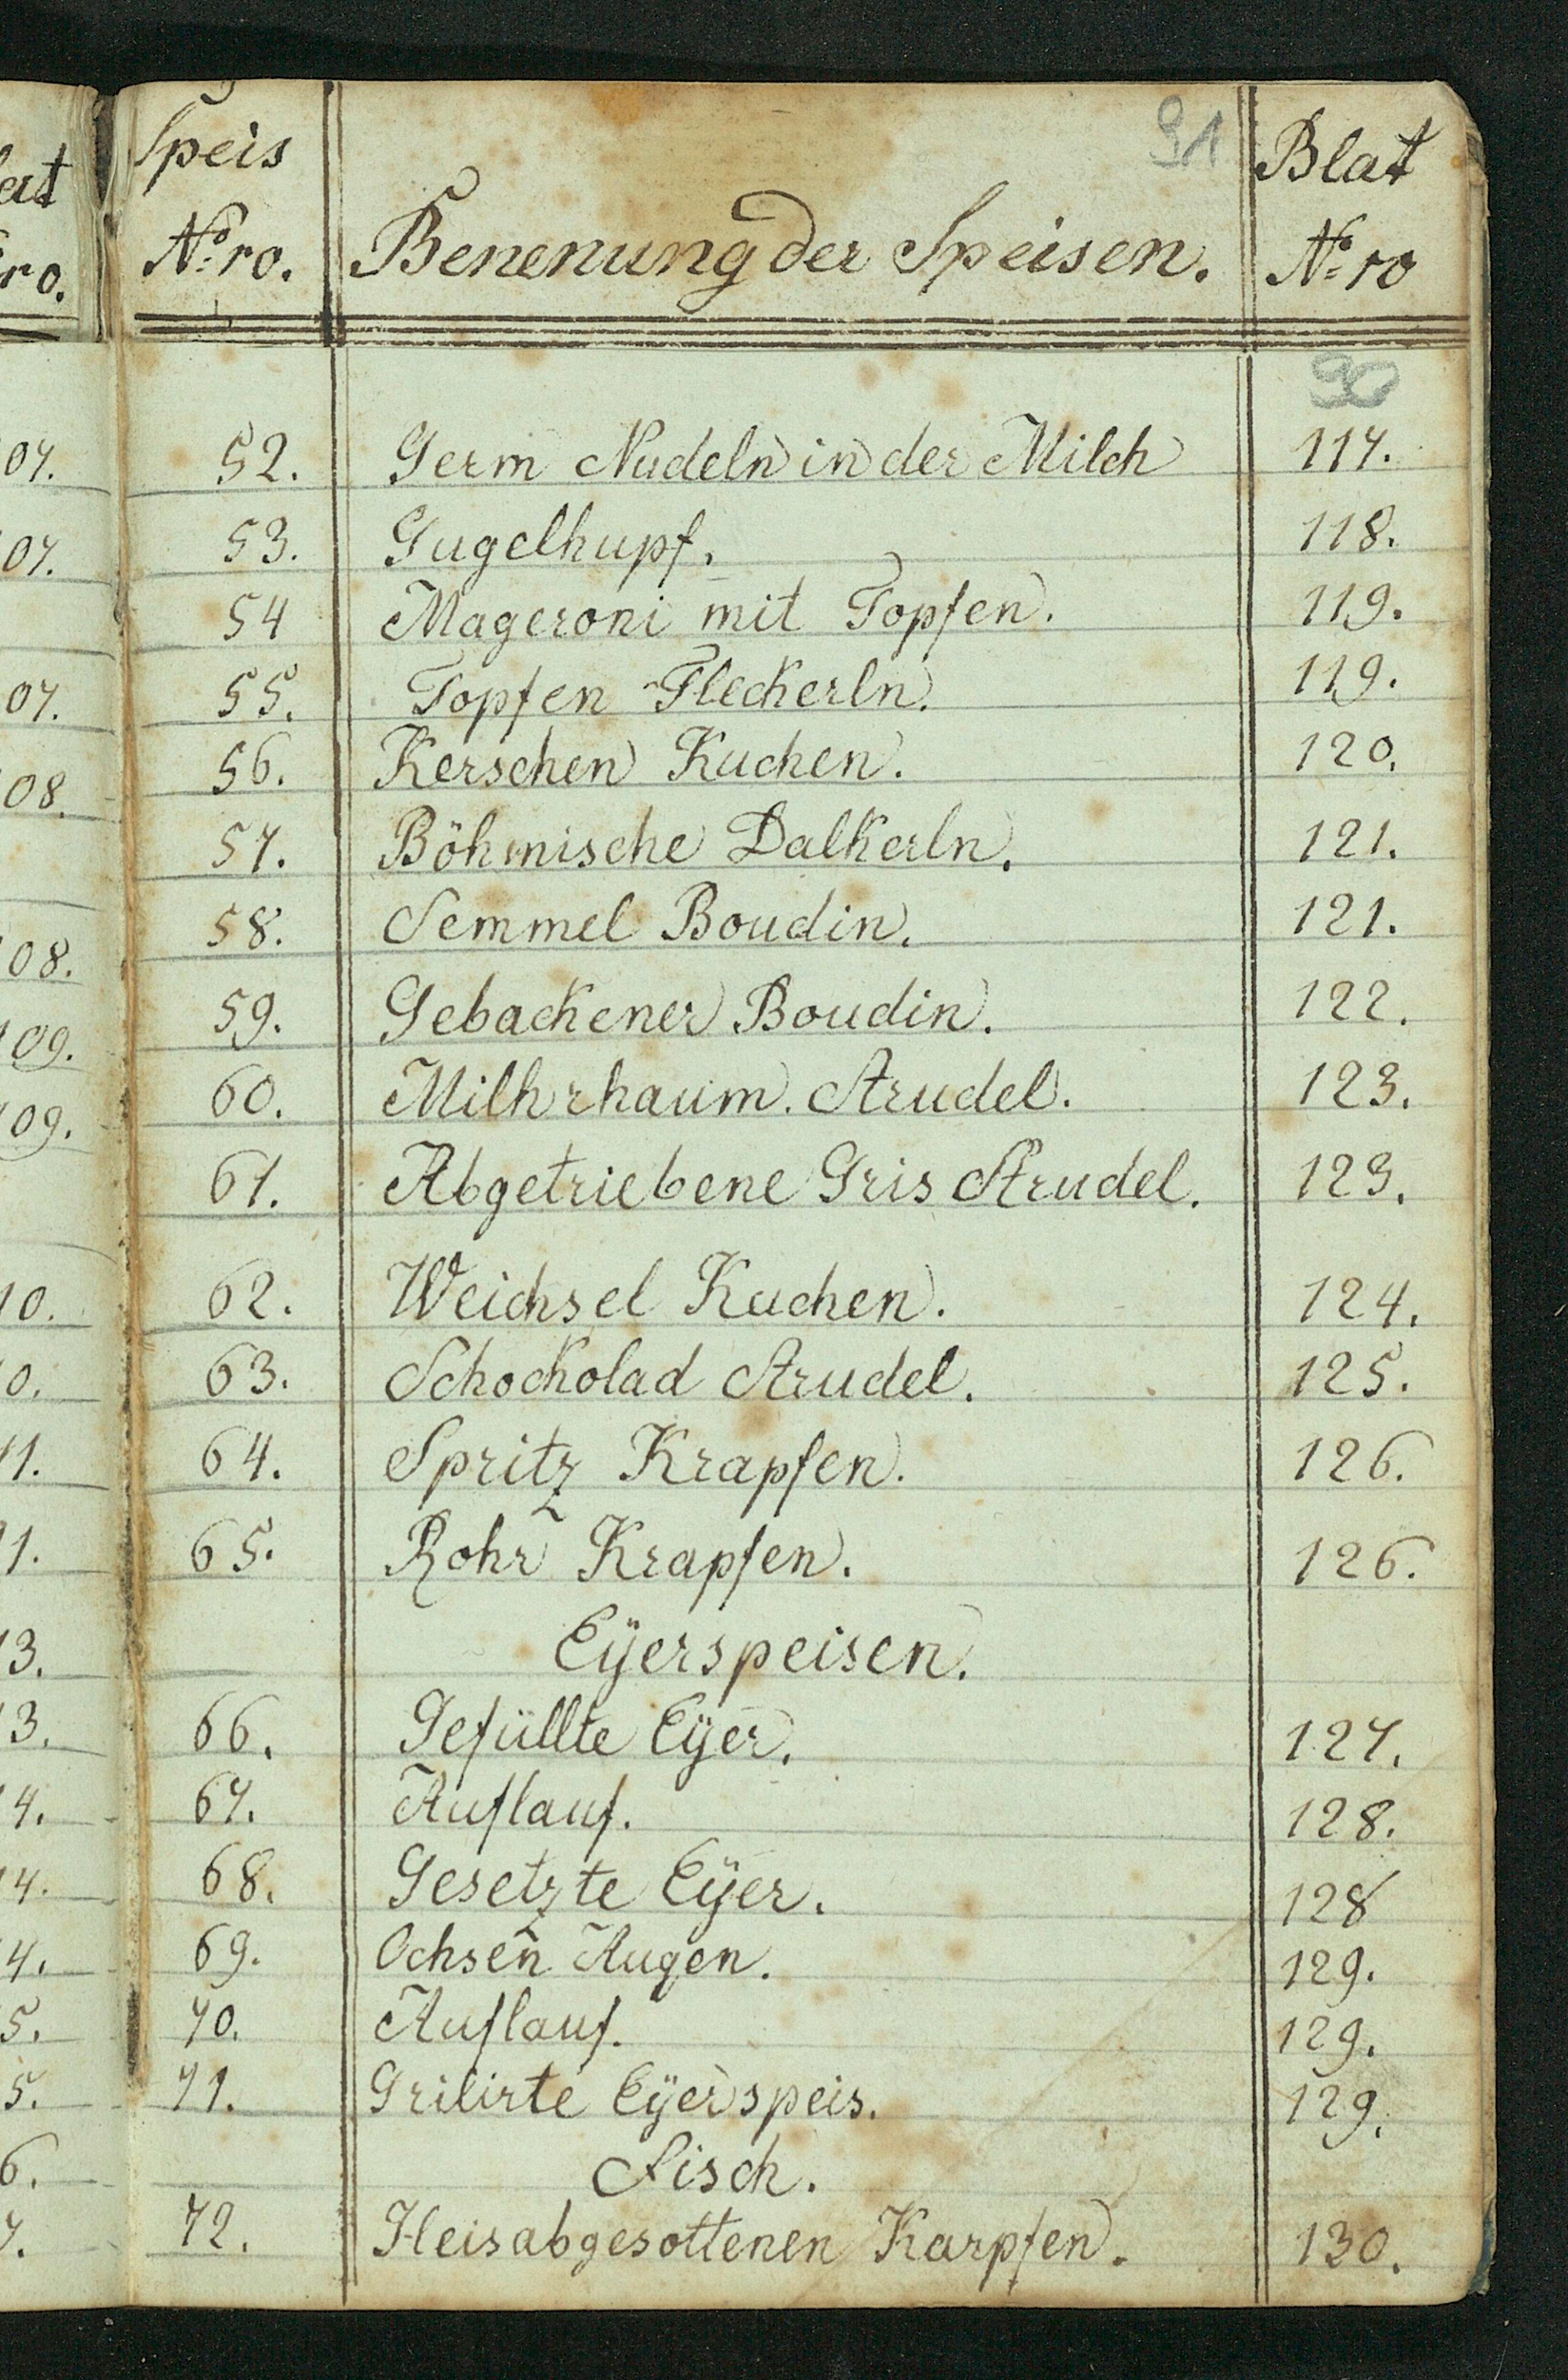 91
Speis Nº:ro. Benenung der Speisen. Blat Nº:ro
90
52. Germ Nudeln in der Milch 117.
53. Gugelhupf. 118.
54 Mageroni mit Topfen. 119.
55. Topfen Fleckerln. 119.
56. Kerschen Kuchen. 120.
57. Böhmische Dalkerln. 121.
58. Semmel Boudin. 121.
59. Gebackener Boudin. 122.
60. Milhrhaum. Strudel. 123.
61. Abgetriebene Gris Strudel. 123.
62. Weichsel Kuchen. 124.
63. Schockolad Strudel. 125.
64. Spritz Krapfen. 126.
65. Rohr Krapfen. 126.
Eÿerspeisen.
66. Gefüllte Eÿer. 127.
67. Auflauf. 128.
68. Gesetzte Eÿer. 128
69. Ochsen Augen. 129.
70. Auflauf. 129.
71. Grilirte Eÿerspeis. 129.
Fisch.
72. Heisabgesottenen Karpfen. 130.